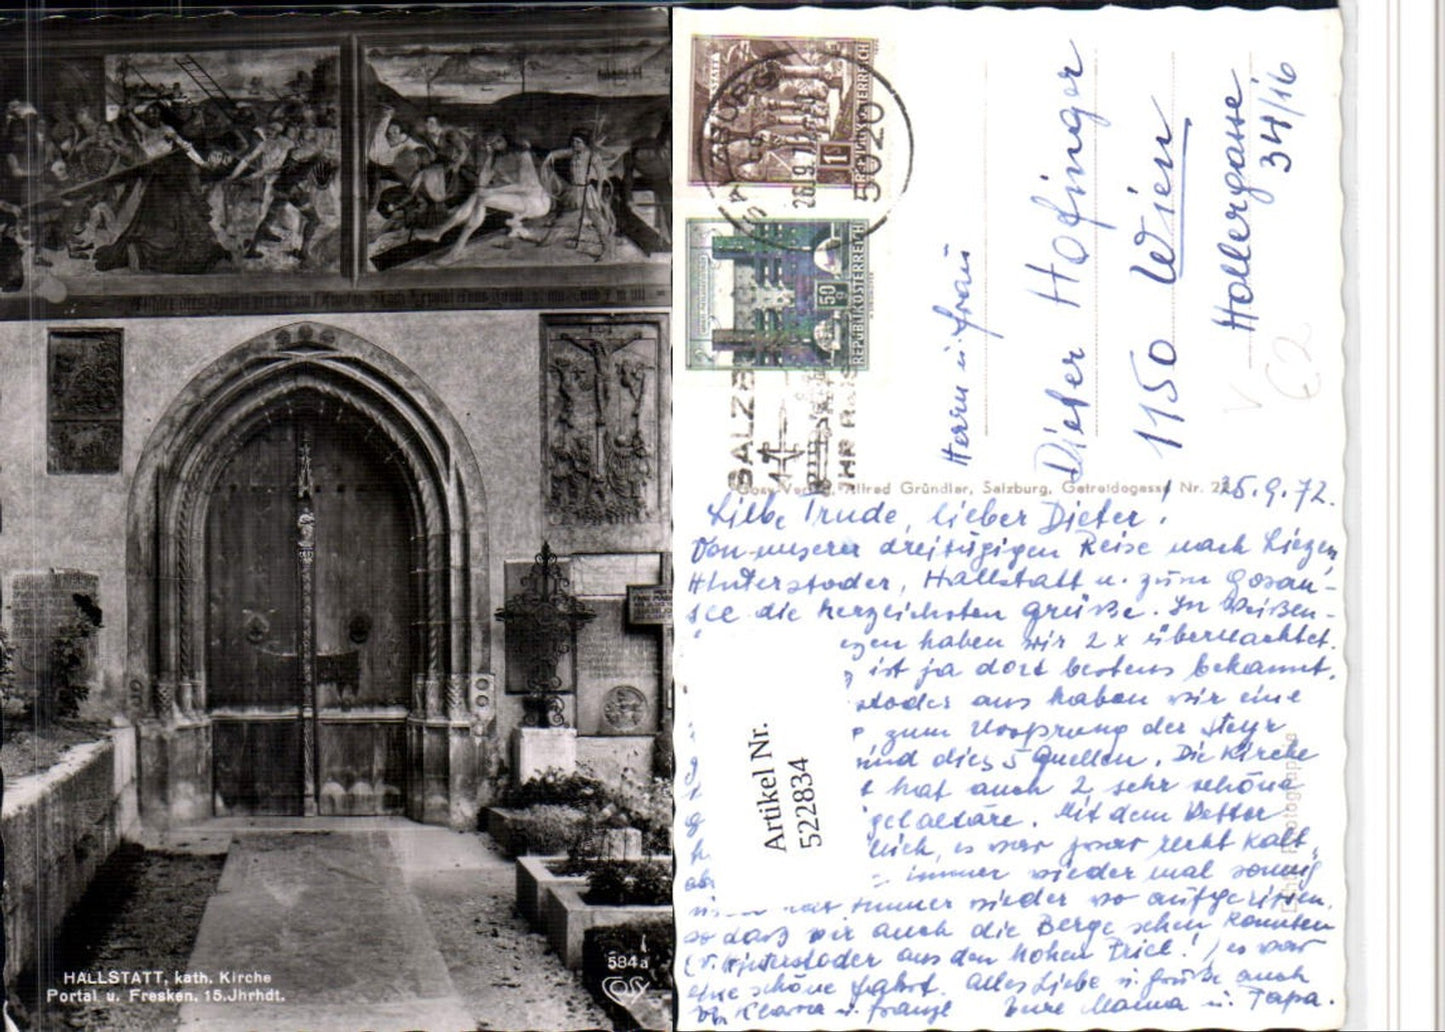 HALLSTATT, kath. Kirche
Portal u. Fresken, 15.Jhrhdt.
584a
COSY
SALZBURG
5020
REPUBLIK ÖSTERREICH
50
REPUBLIK ÖSTERREICH
Herrn u. Frau
Dieter Hofinger
1150 Wien
Hollergasse
34/16
Cosy-Verlag, Alfred Gründler, Salzburg, Getreidegasse Nr. 22
25.9.72.
Liebe Trude, lieber Dieter!
Von unserer dreitägigen Reise nach Liezen,
Hinterstoder, Hallstatt u. zum Gosau-
see die herzlichsten Grüße. In Weißen-
haben wir 2 x übernachtet.
ist ja dort bestens bekannt.
stoder aus haben wir eine
zum Ursprung der Steyr
und dies 5 Quellen. Die Kirche
t hat auch 2 sehr schöne
gelaltäre. Mit dem Wetter
es war zwar recht kalt,
immer wieder mal sonnig
war immer wieder so aufgerissen,
so daß wir auch die Berge sehen konnten
(v. Hinterstoder aus den Hohen Priel!), es war
eine schöne Fahrt. Alles Liebe u. Grüße auch
Klara u. Franzl Eure Mama u. Papa.
Artikel Nr.
522834